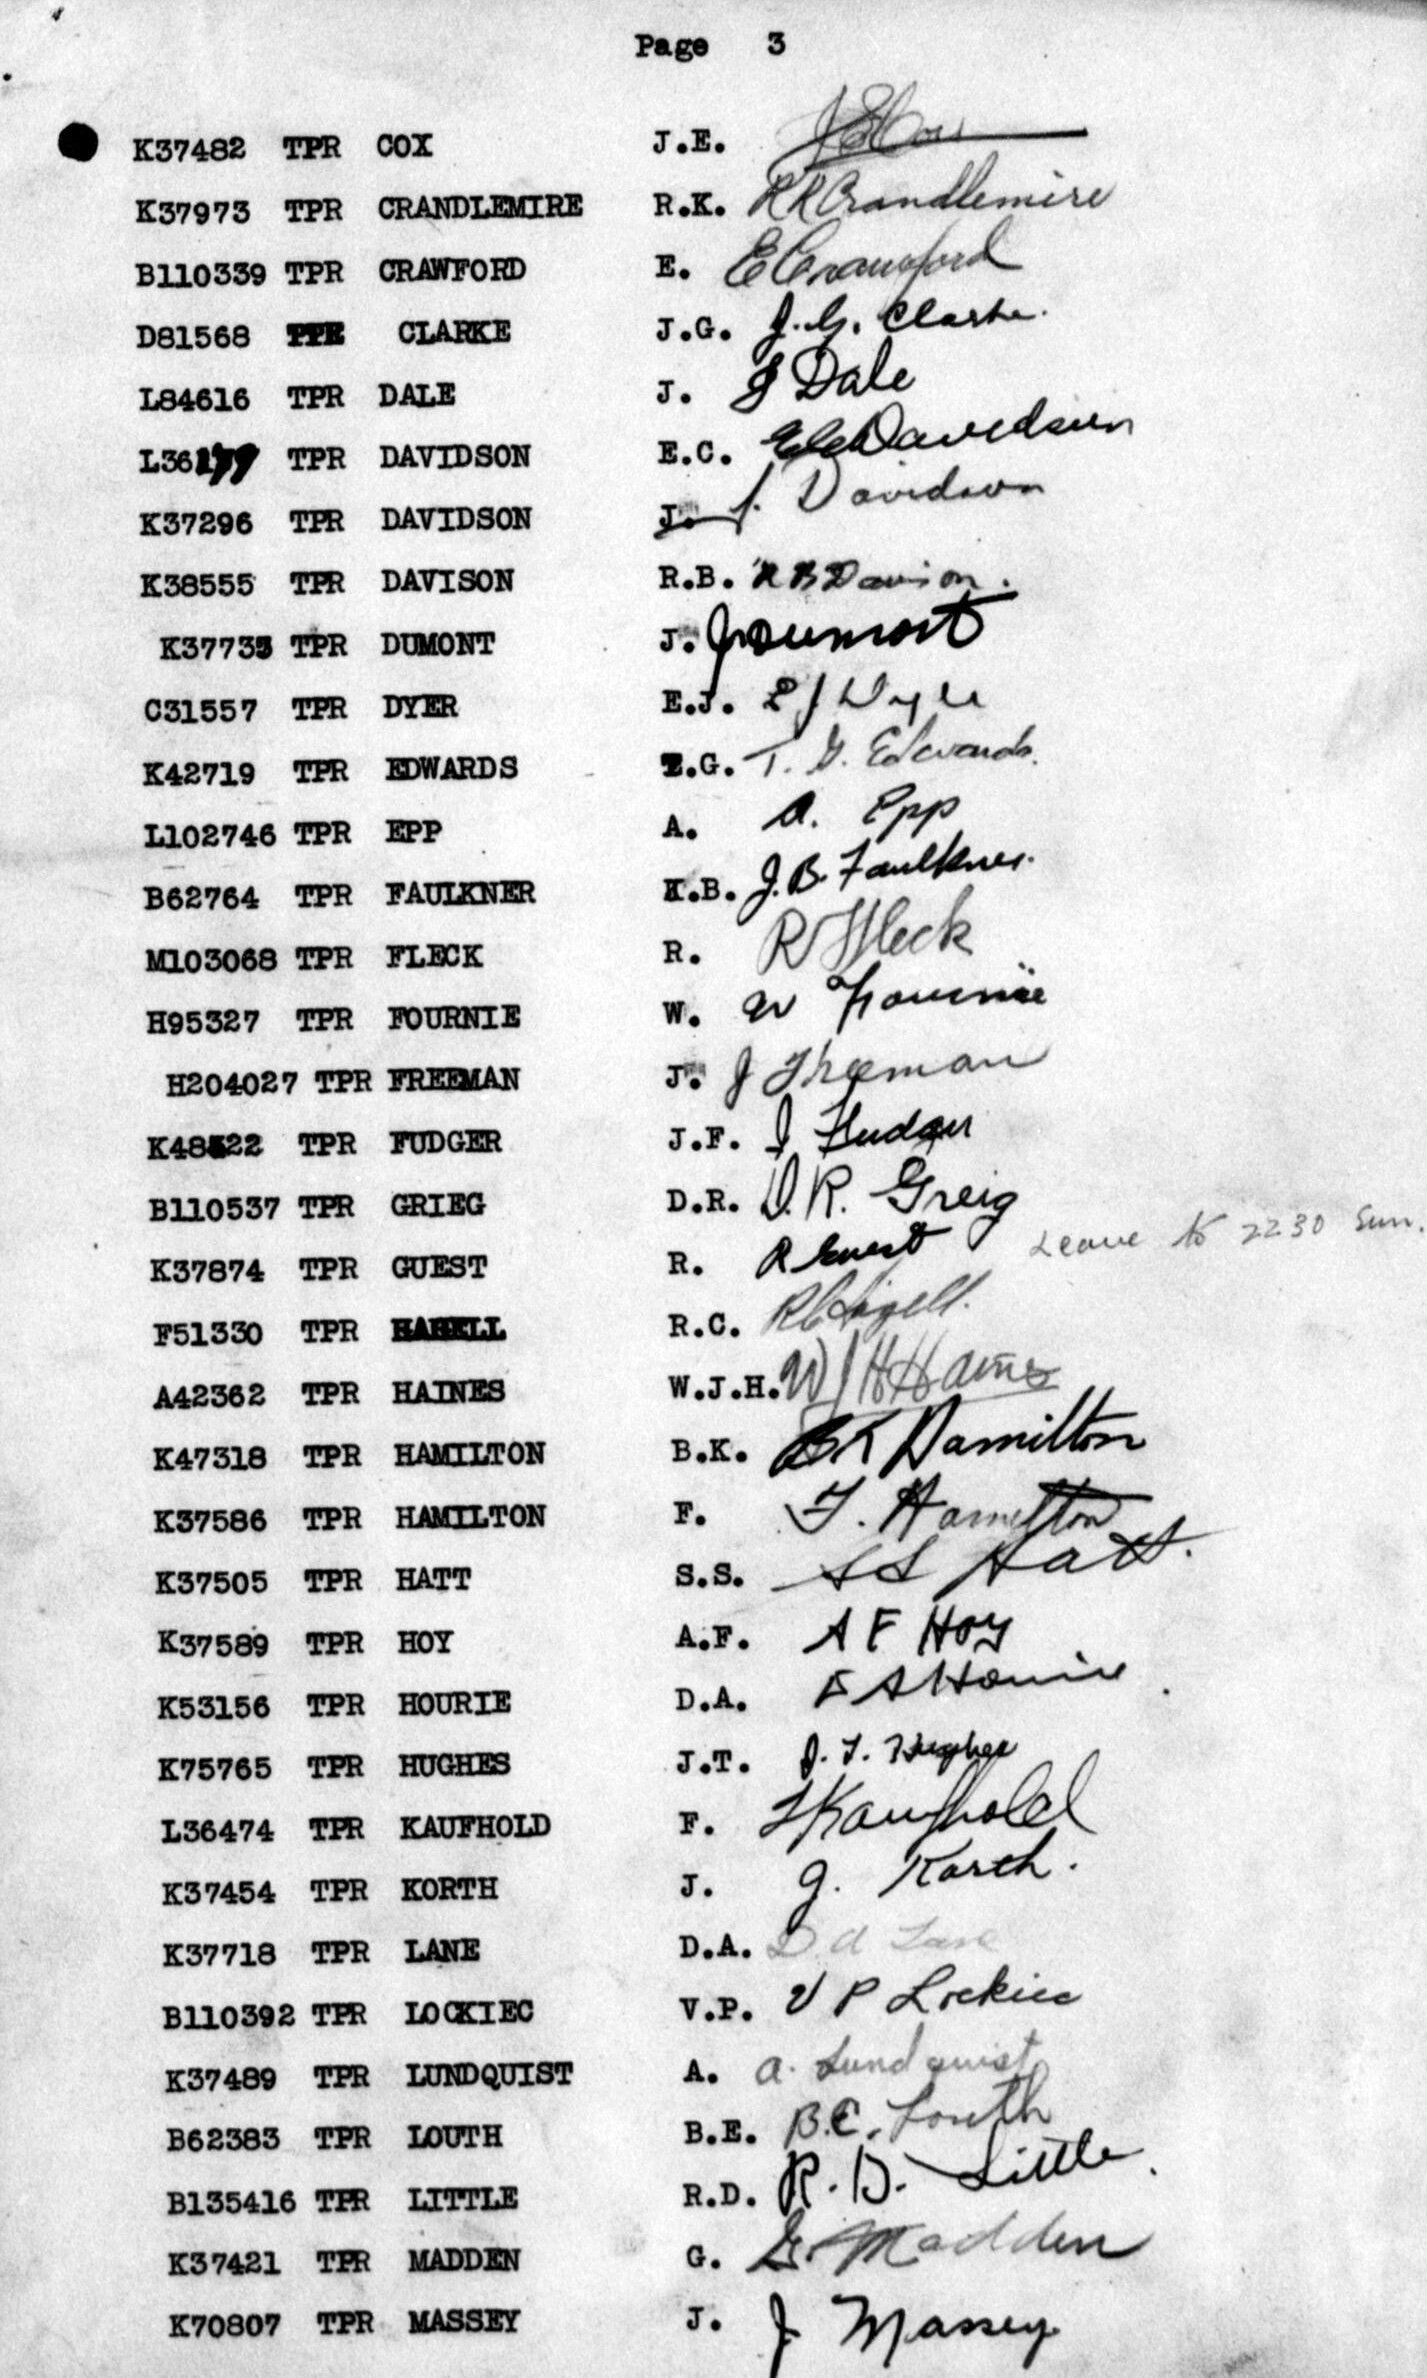 Page 3
K37482 TPR COX J.E. J E Cox
K37973 TPR CRANDLEMIRE R.K. R K Crandlemire
B110339 TPR CRAWFORD E. E Crawford
D81568 CLARKE J.G. J. G. Clarke.
L84616 TPR DALE J. J Dale
L36199 TPR DAVIDSON E.C. E C Davidson
K37296 TPR DAVIDSON J. J. Davidson
K38555 TPR DAVISON R.B. R B Davison.
K37735 TPR DUMONT J. J Dumont
C31557 TPR DYER E.J. E J Dyer
K42719 TPR EDWARDS T.G. T. G. Edwards.
L102746 TPR EPP A. A. Epp
B62764 TPR FAULKNER J.B. Faulkner.
M103068 TPR FLECK R. R Fleck
H95327 TPR FOURNIE W. W Fournie
H204027 TPR FREEMAN J. J Freeman
TPR FUDGER J.F. J Fudger
B110537 TPR GRIEG D.R. D. R. Greig
K37874 TPR GUEST R. R Guest Leave to 2230 Sun.
F51330 TPR R.C.
A42362 TPR HAINES W.J.H. W J H Haines
K47318 TPR HAMILTON B.K. B K Hamilton
K37586 TPR HAMILTON F. F. Hamilton
K37505 TPR HATT S.S. S S Hatt.
K37589 TPR HOY A.F. A F Hoy
K53156 TPR HOURIE D.A. D A Hourie
K75765 TPR HUGHES J.T. J. T. Hughes
L36474 TPR KAUFHOLD F. F Kaufhold
K37454 TPR KORTH J. J. Korth.
K37718 TPR LANE D.A. D A Lane
B110392 TPR LOCKIEC V.P. V P Lockiec
K37489 TPR LUNDQUIST A. A. Lundquist
B62383 TPR LOUTH B.E. B.E. Louth
B135416 TPR LITTLE R.D. R. D. Little
K37421 TPR MADDEN G. G. Madden
K70807 TPR MASSEY J. J Massey